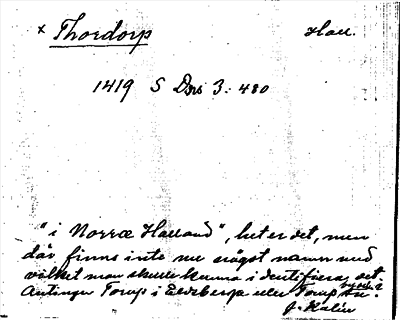 × Thordorp Hall.
1419 S Dns 3: 480
"i Norræ Halland", heter det, men
där finns inte nu något namn med
vilket man skulle kunna identifiera det.
Antingen Torup i Eldsberga eller Torup
J. Kalén